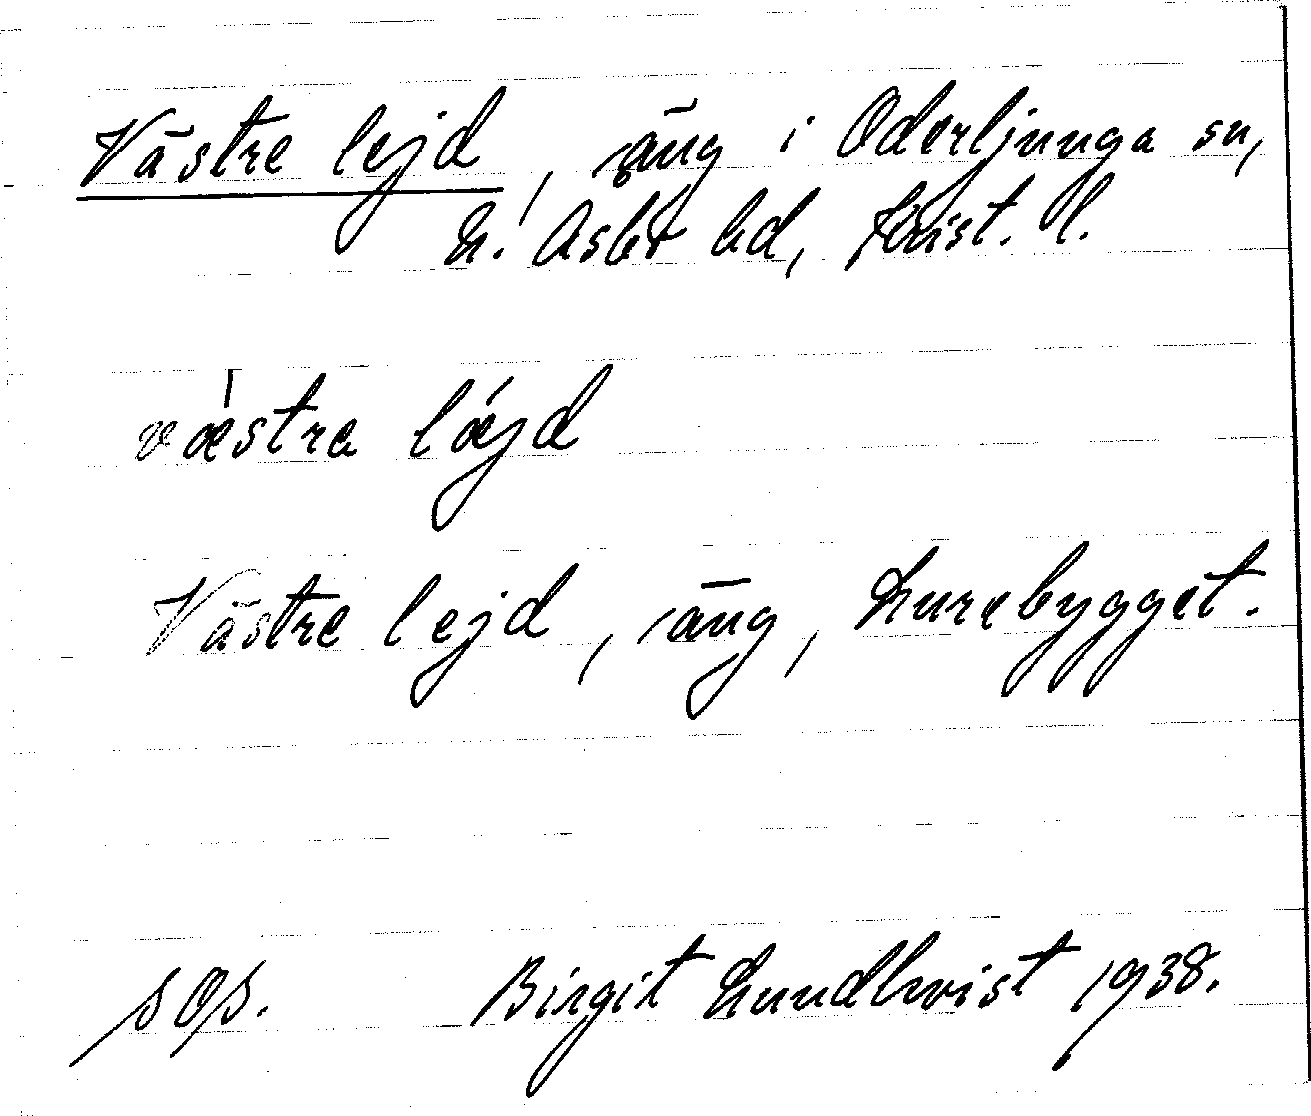 Västre lejd, äng i Oderljunga sn,
N. Åsbo hd, Krist. l.
væstra læjd
Västre lejd, äng, Lurebygget.
Birgit Lundkvist 1938.